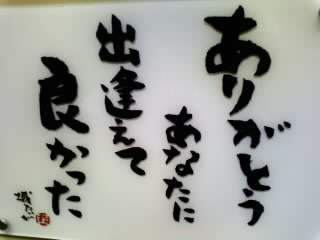 ありがとう
あなたに
出逢えて
良かった